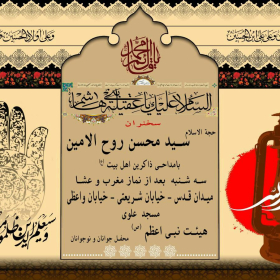 و علی علی ابن الحسین
و علی اولاد الحسین
السلام علیک یا عقیلة بنی هاشم
سخنران
حجة الاسلام
سید محسن روح الامین
بامداحی ذاکرین اهل بیت
سه شنبه بعد از نماز مغرب و عشا
میدان قدس - خیابان شریعتی - خیابان واعظی
مسجد علوی
هیئت نبی اعظم (ص)
محفل جوانان و نوجوانان